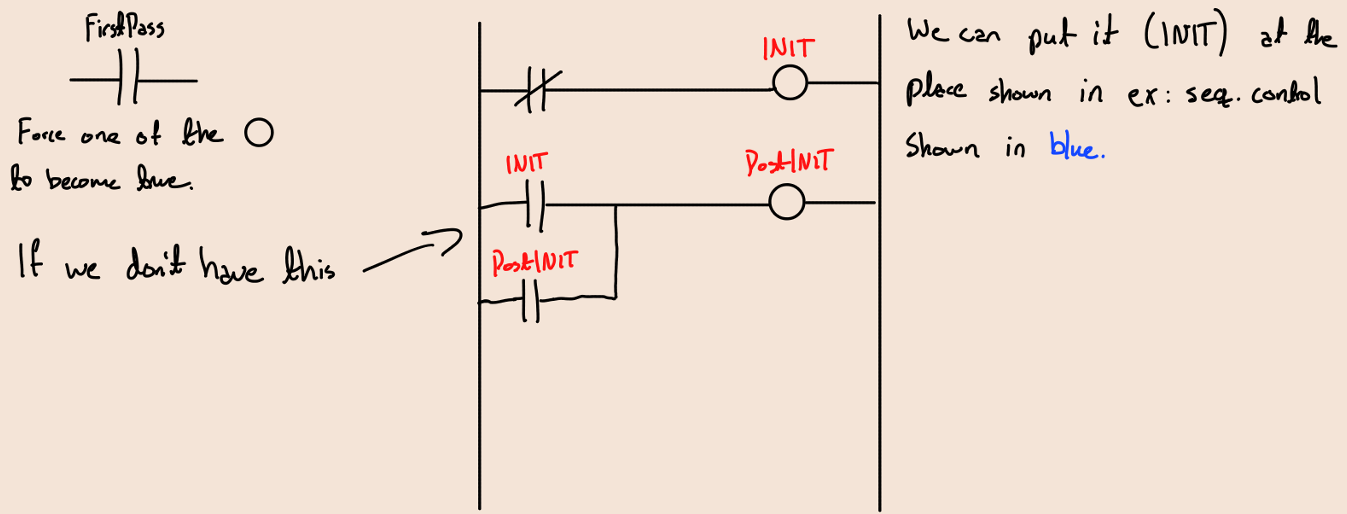 FirstPass
Force one of the
to become true.
If we don't have this
INIT
INIT
PostINIT
PostINIT
We can put it (INIT) at the
place shown in ex: seq. control
Shown in blue.